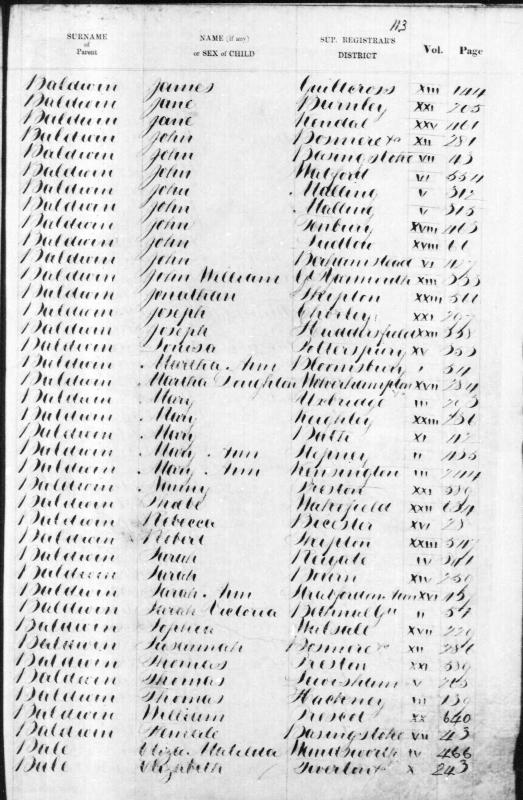 113
SURNAME of Parent NAME (if any) or SEX of CHILD SUP. REGISTRAR'S DISTRICT Vol. Page
Baldwin James Guiltcross XIII 144
Baldwin Jane Burnley XXI 205
Baldwin Jane Kendal XXV 461
Baldwin John Bosmere &c XII 281
Baldwin John Basingstoke VII 43
Baldwin John Watford VI 554
Baldwin John Malling V 312
Baldwin John Malling V 315
Baldwin John Tenbury XVIII 463
Baldwin John Ludlow XVIII 61
Baldwin John Berkhamstead VI
Baldwin John William Gt Yarmouth XIII
Baldwin Jonathan Skipton XXIII 511
Baldwin Joseph Chorley XXI 297
Baldwin Joseph Huddersfield XXII 338
Baldwin Louisa Potterspury XV 353
Baldwin Martha Ann Bloomsbury I 54
Baldwin Martha Wolverhampton XVII 784
Baldwin Mary Uxbridge III 203
Baldwin Mary Keighley XXIII 286
Baldwin Mary Bath XI 42
Baldwin Mary Ann Stepney II 435
Baldwin Mary Ann Kensington III 244
Baldwin Preston XXI 539
Baldwin Wakefield XXII 634
Baldwin Rebecca Bicester XVI 28
Baldwin Robert Skipton XXIII 547
Baldwin Sarah Reigate IV 361
Baldwin Sarah Bourn XIV 259
Baldwin Sarah Ann Stratford on Avon XVI 457
Baldwin Sarah Victoria Bethnal Gn II 57
Baldwin Sophia Walsall XVII 229
Baldwin Susannah Bosmere &c XII 286
Baldwin Thomas Preston XXI 539
Baldwin Thomas V 205
Baldwin Thomas Hackney III 139
Baldwin William Prescot XX 640
Baldwin Female Basingstoke VII 43
Bale Eliza Matilda Wandsworth IV 466
Bale Elizabeth Tiverton &c X 243